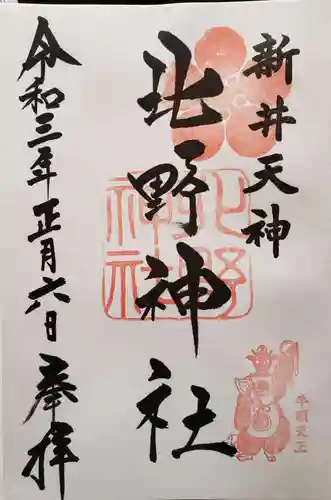 新井天神
北野神社
令和三年正月六日 奉拝
北野
神社